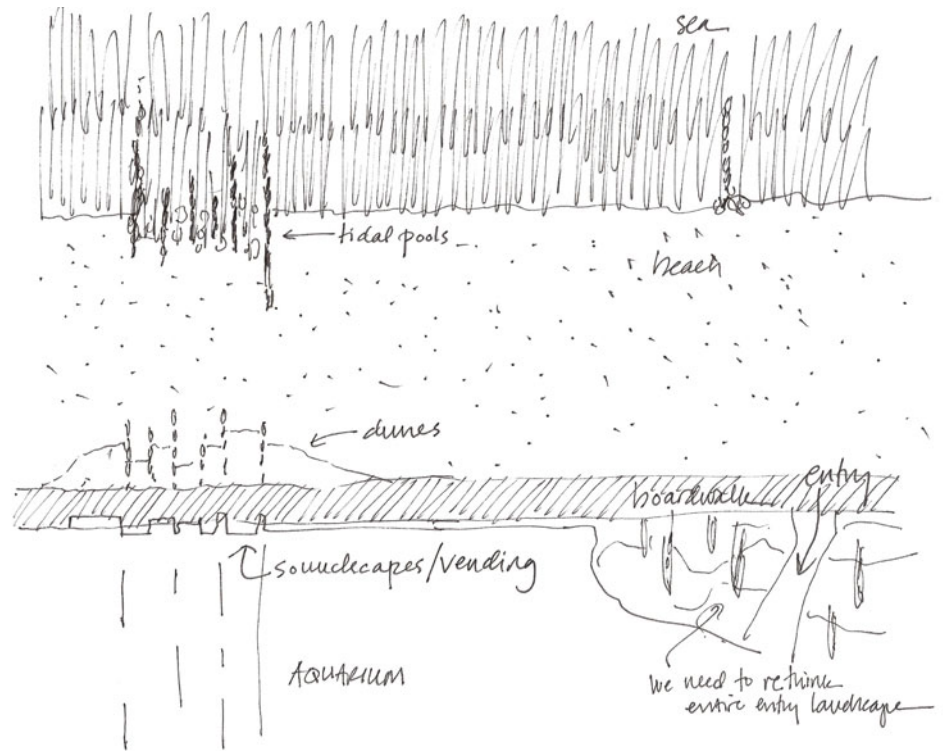 sea
tidal pools
beach
dunes
entry
boardwalk
soundscapes/vending
AQUARIUM
we need to rethink
entire entry landscape